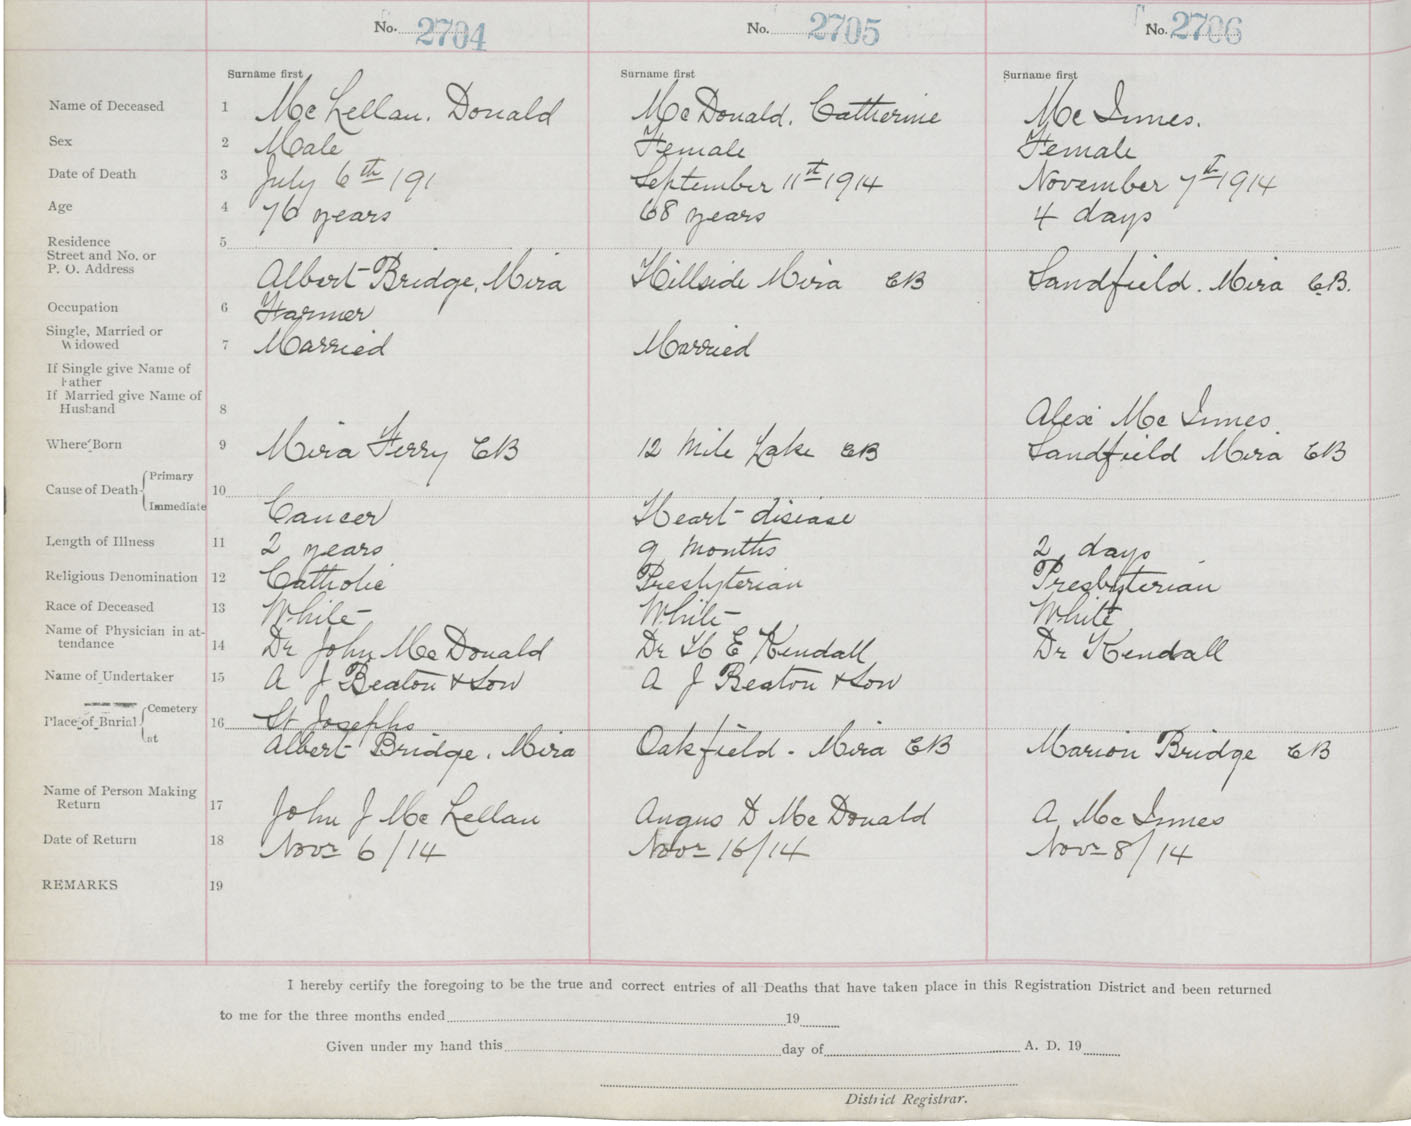 No. 2704 No. 2705 No. 2706
Surname first Surname first Surname first
Name of Deceased 1 McLellan, Donald McDonald, Catherine McInnes.
Sex 2 Male Female Female
Date of Death 3 July 6th 191 September 11th 1914 November 7th 1914
Age 4 76 years 68 years 4 days
Residence 5
Street and No. or
P. O. Address
Albert Bridge, Mira Hillside Mira CB Sandfield. Mira C.B.
Occupation 6 Farmer
Single, Married or
Widowed 7 Married Married
If Single give Name of
Father
If Married give Name of
Husband 8 Alex McInnes
Where Born 9 Mira Ferry CB 12 Mile Lake CB Sandfield Mira CB
Cause of Death Primary
10
Immediate Cancer Heart disease
Length of Illness 11 2 years 9 months 2 days
Religious Denomination 12 Catholic Presbyterian Presbyterian
Race of Deceased 13 White White White
Name of Physician in at-
tendance 14 Dr John McDonald Dr H E Kendall Dr Kendall
Name of Undertaker 15 A J Beaton & Son A J Beaton & Son
Place of Burial Cemetery 16 St Josephs
at Albert Bridge, Mira Oakfield - Mira CB Marion Bridge CB
Name of Person Making
Return 17 John J McLellan Angus D McDonald A McInnes
Date of Return 18 Novr 6/14 Novr 16/14 Novr 8/14
REMARKS 19
I hereby certify the foregoing to be the true and correct entries of all Deaths that have taken place in this Registration District and been returned
to me for the three months ended 19
Given under my hand this day of A. D. 19
District Registrar.